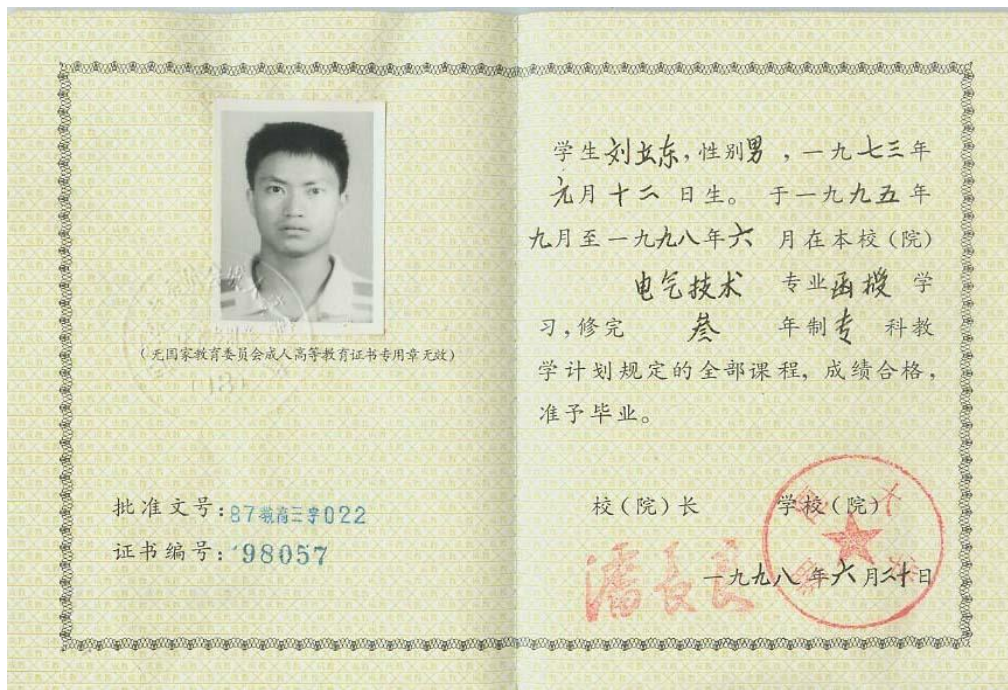 (无国家教育委员会成人高等教育证书专用章无效)
批准文号:87教高三字022
证书编号:98057
学生刘立东,性别男,一九七三年
元月十二日生。于一九九五年
九月至一九九八年六月在本校(院)
电气技术 专业函授学
习,修完 叁 年制专科教
学计划规定的全部课程,成绩合格,
准予毕业。
校(院)长 学校(院)
潘長良
一九九八年六月二十日